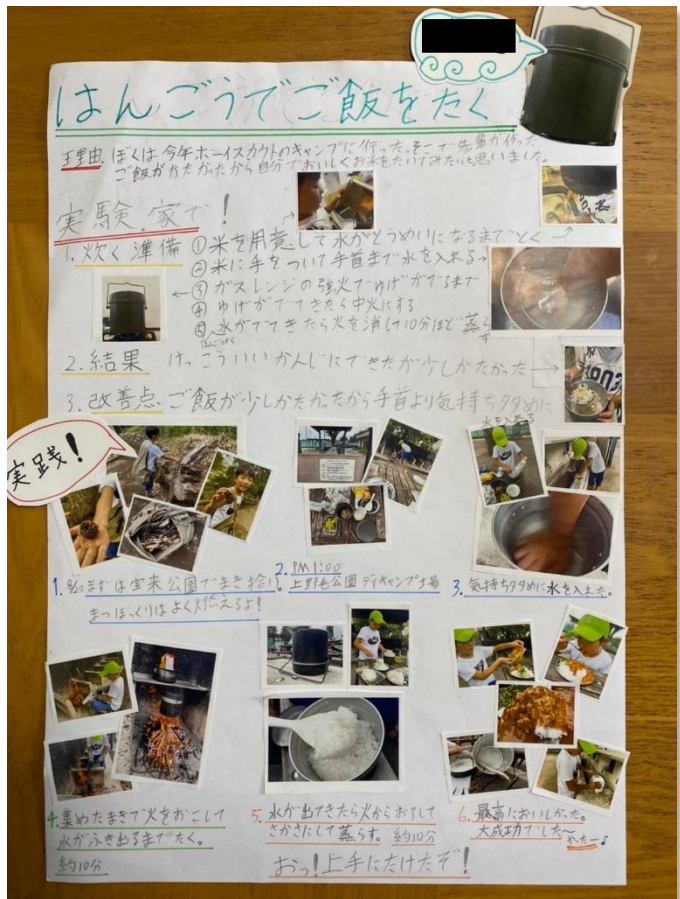 はんごうでご飯をたく
理由.ぼくは今年ボーイスカウトのキャンプに行った。そこで先輩が作った
ご飯がかたかったから自分でおいしくお米をたいてみたいと思いました。
実験.家で!
1.炊く準備
①米を用意して水がとうめいになるまでとぐ
②米に手をついて手首まで水を入れる
③ガスレンジの強火でゆげがでるまで
④ゆげがでてきたら中火にする
⑤水がでてきたら火を消して10分ほど蒸らす
2.結果 けっこういいかんじにできたが少しかたかった
3.改善点 ご飯が少しかたかったから手首より気持ち多めに
水を入れる
実践!
1.8/20まずは宝来公園でまき拾い。
まつぼっくりはよく燃えるよ!
2.PM1:00
上野毛公園デイキャンプ士場
3.気持ち多めに水を入れた。
4.集めたまきで火をおこして
水がふき出るまでたく。
約10分
5.水が出てきたら火からおろして
さかさにして蒸らす。約10分
おっ!上手にたけたぞ!
6.最高においしかった。
大成功でした〜
やったー♪